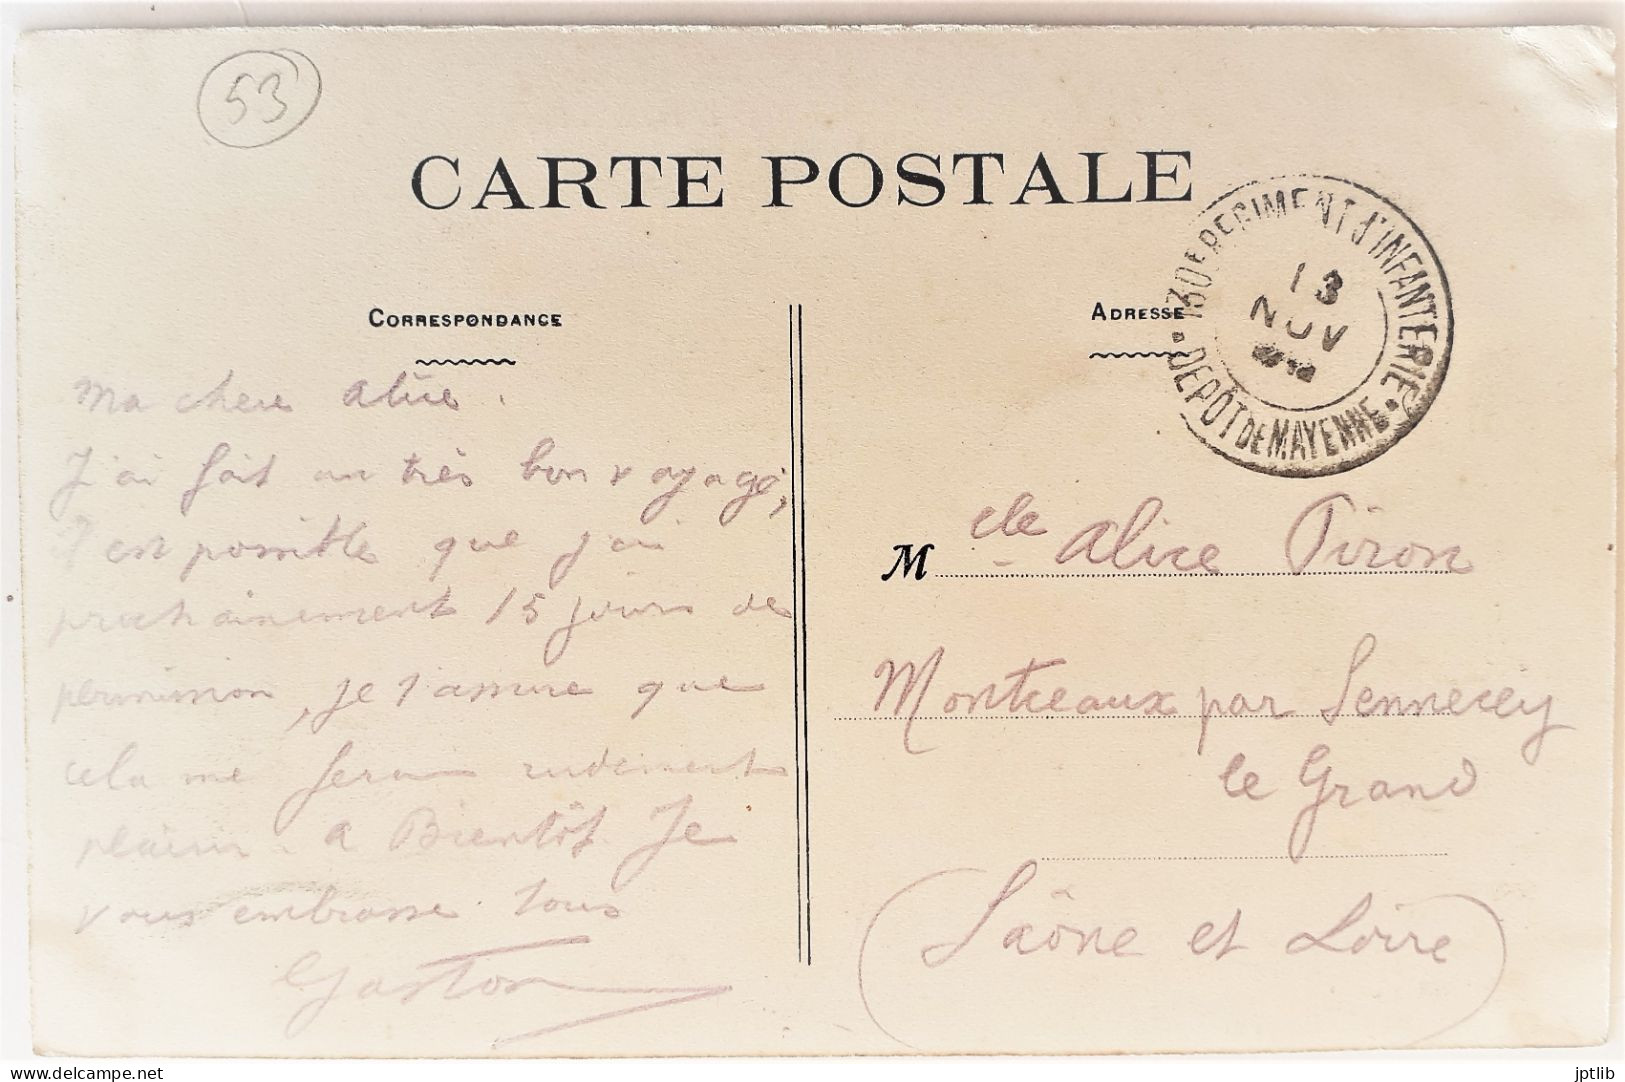 53
CARTE POSTALE
130E REGIMENT D'INFANTERIE
DEPÔT DE MAYENNE
13
NOV
CORRESPONDANCE
ADRESSE
Ma chere Alice.
J'ai fait un très bon voyage,
est possible que j'ai
prochainement 15 jours de
permission, je t'assure que
cela me fera rudement
plaisir. a Bientôt. Je
vous embrasse tous
Gaston
Melle Alice Piron
Montceaux par Sennecey
le Grand
(Saône et Loire)
delcampe.net
jptlib